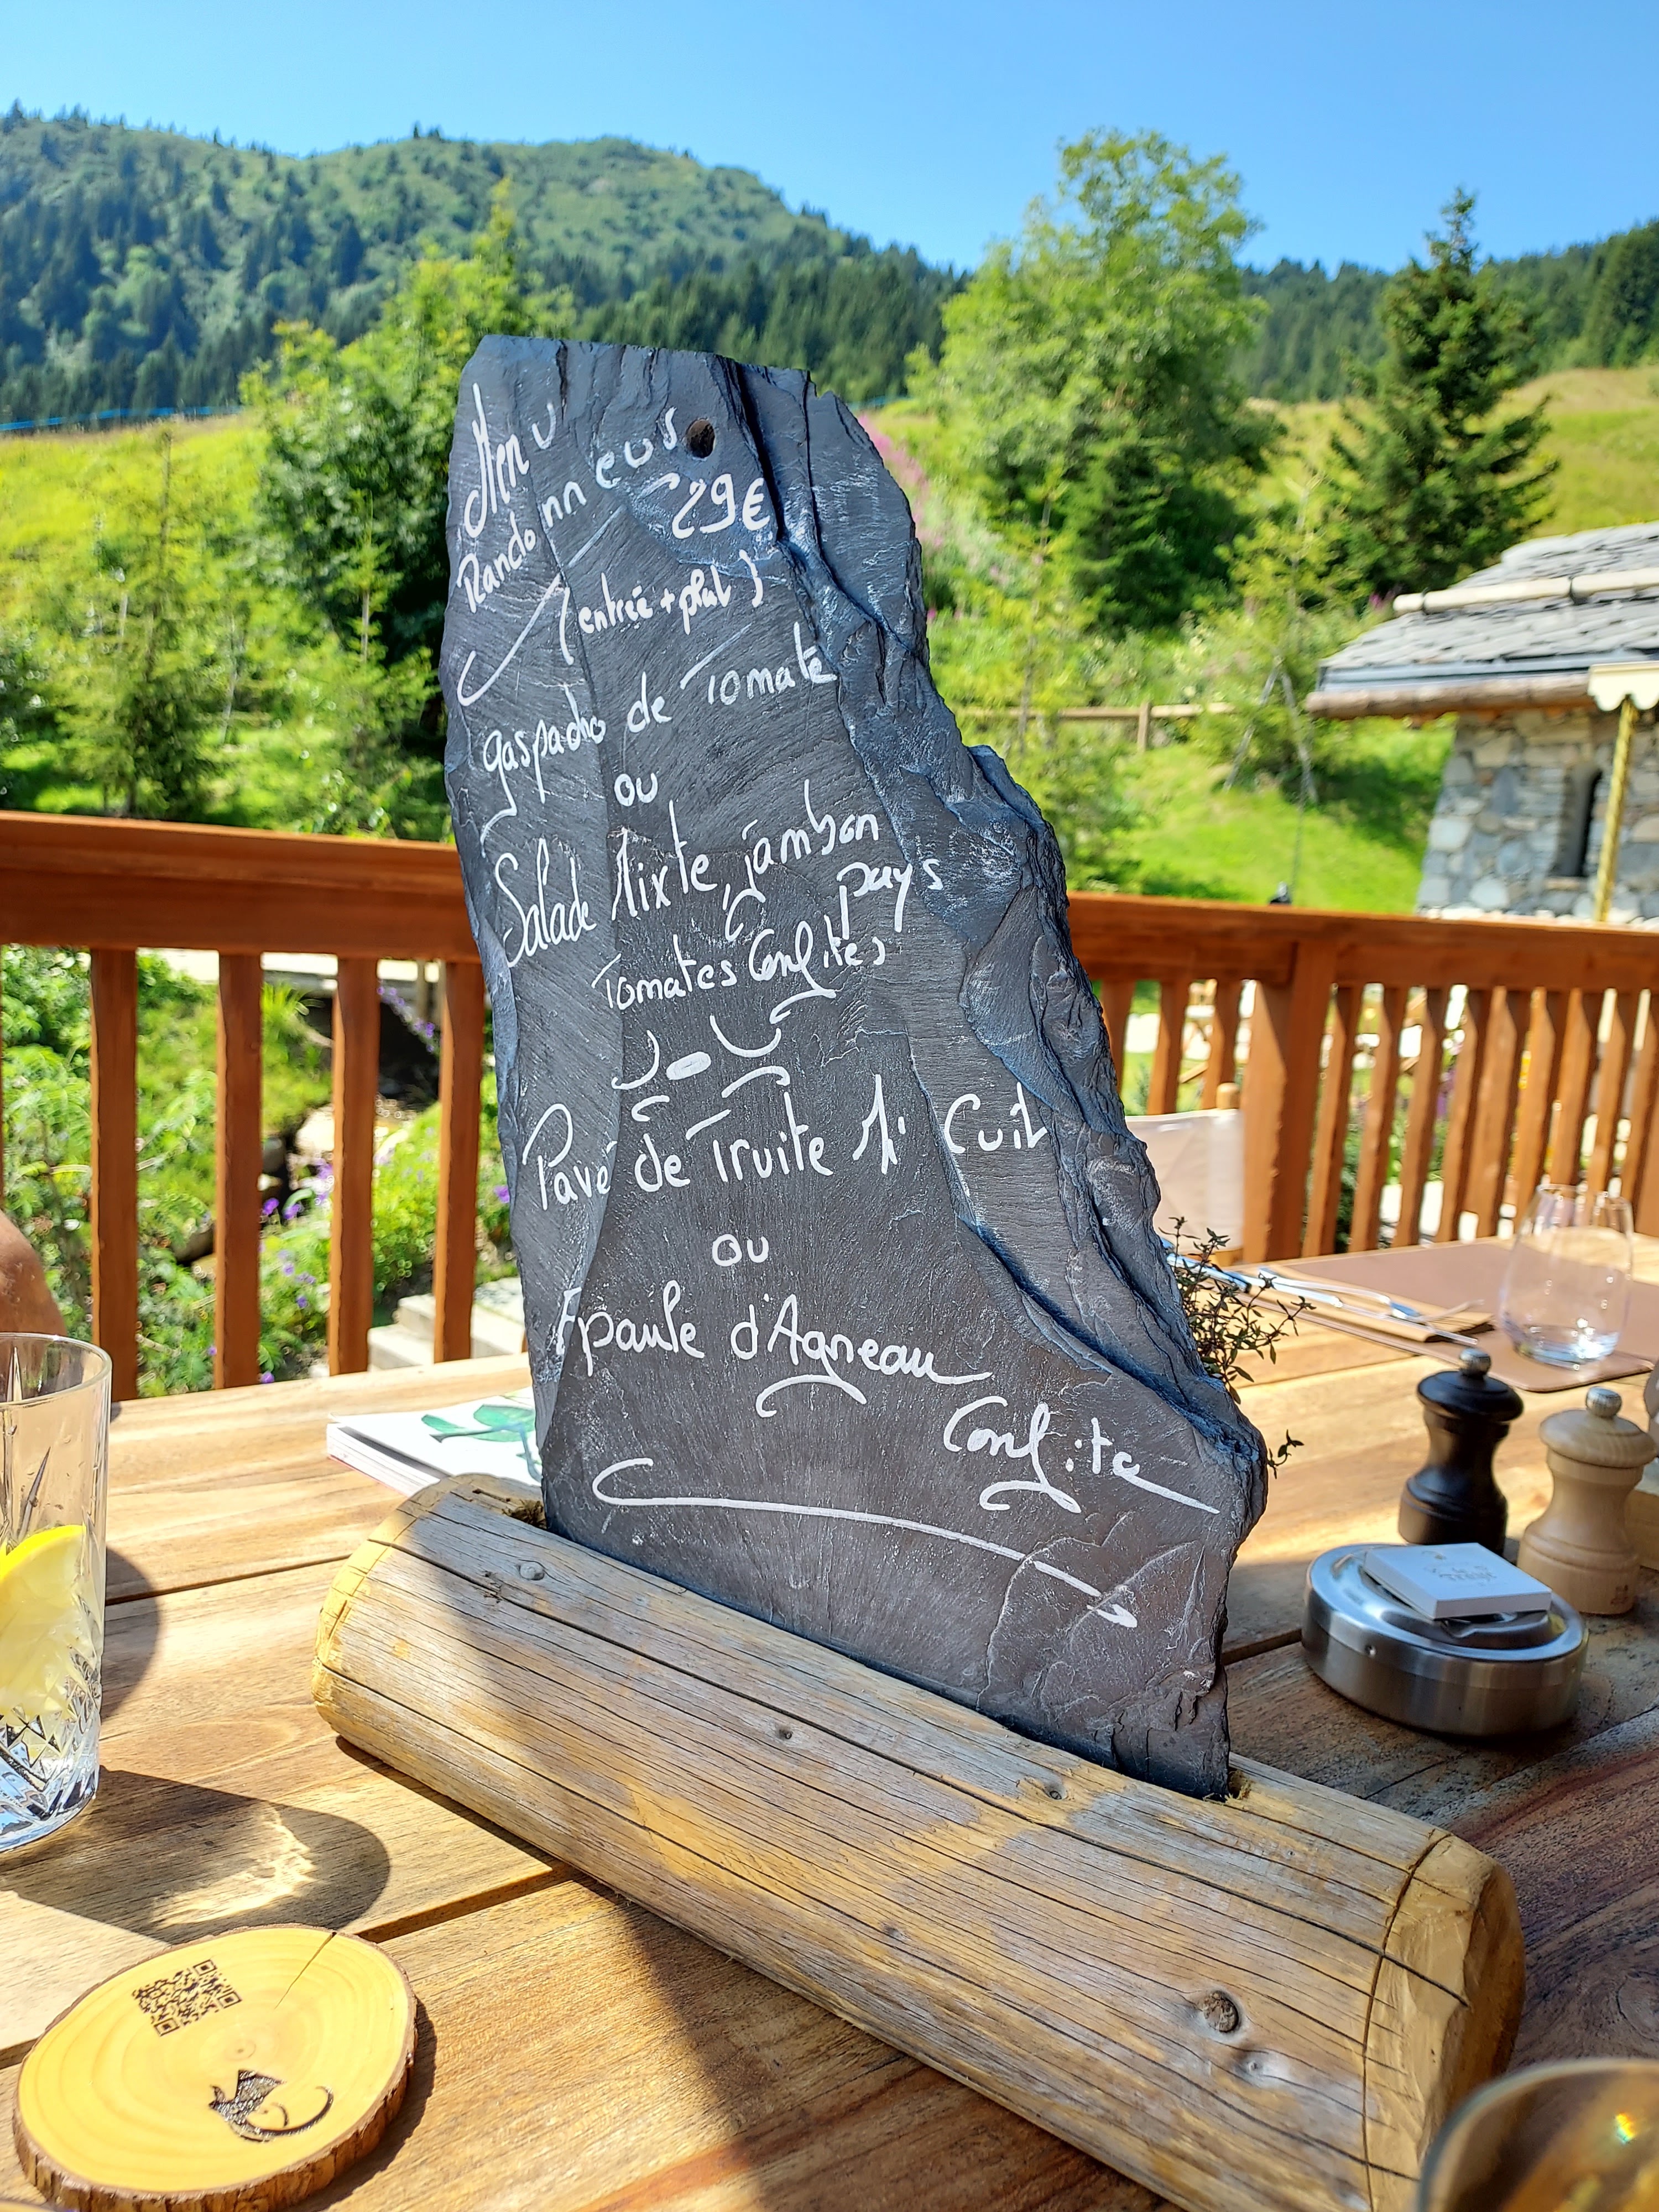 Menu
Randonneurs
29€
(entrée + plat)
gaspacho de Tomate
ou
Salade Mixte, jambon
pays
Tomates Confites
Pavé de Truite Mi Cuit
ou
Epaule d'Agneau
Confite